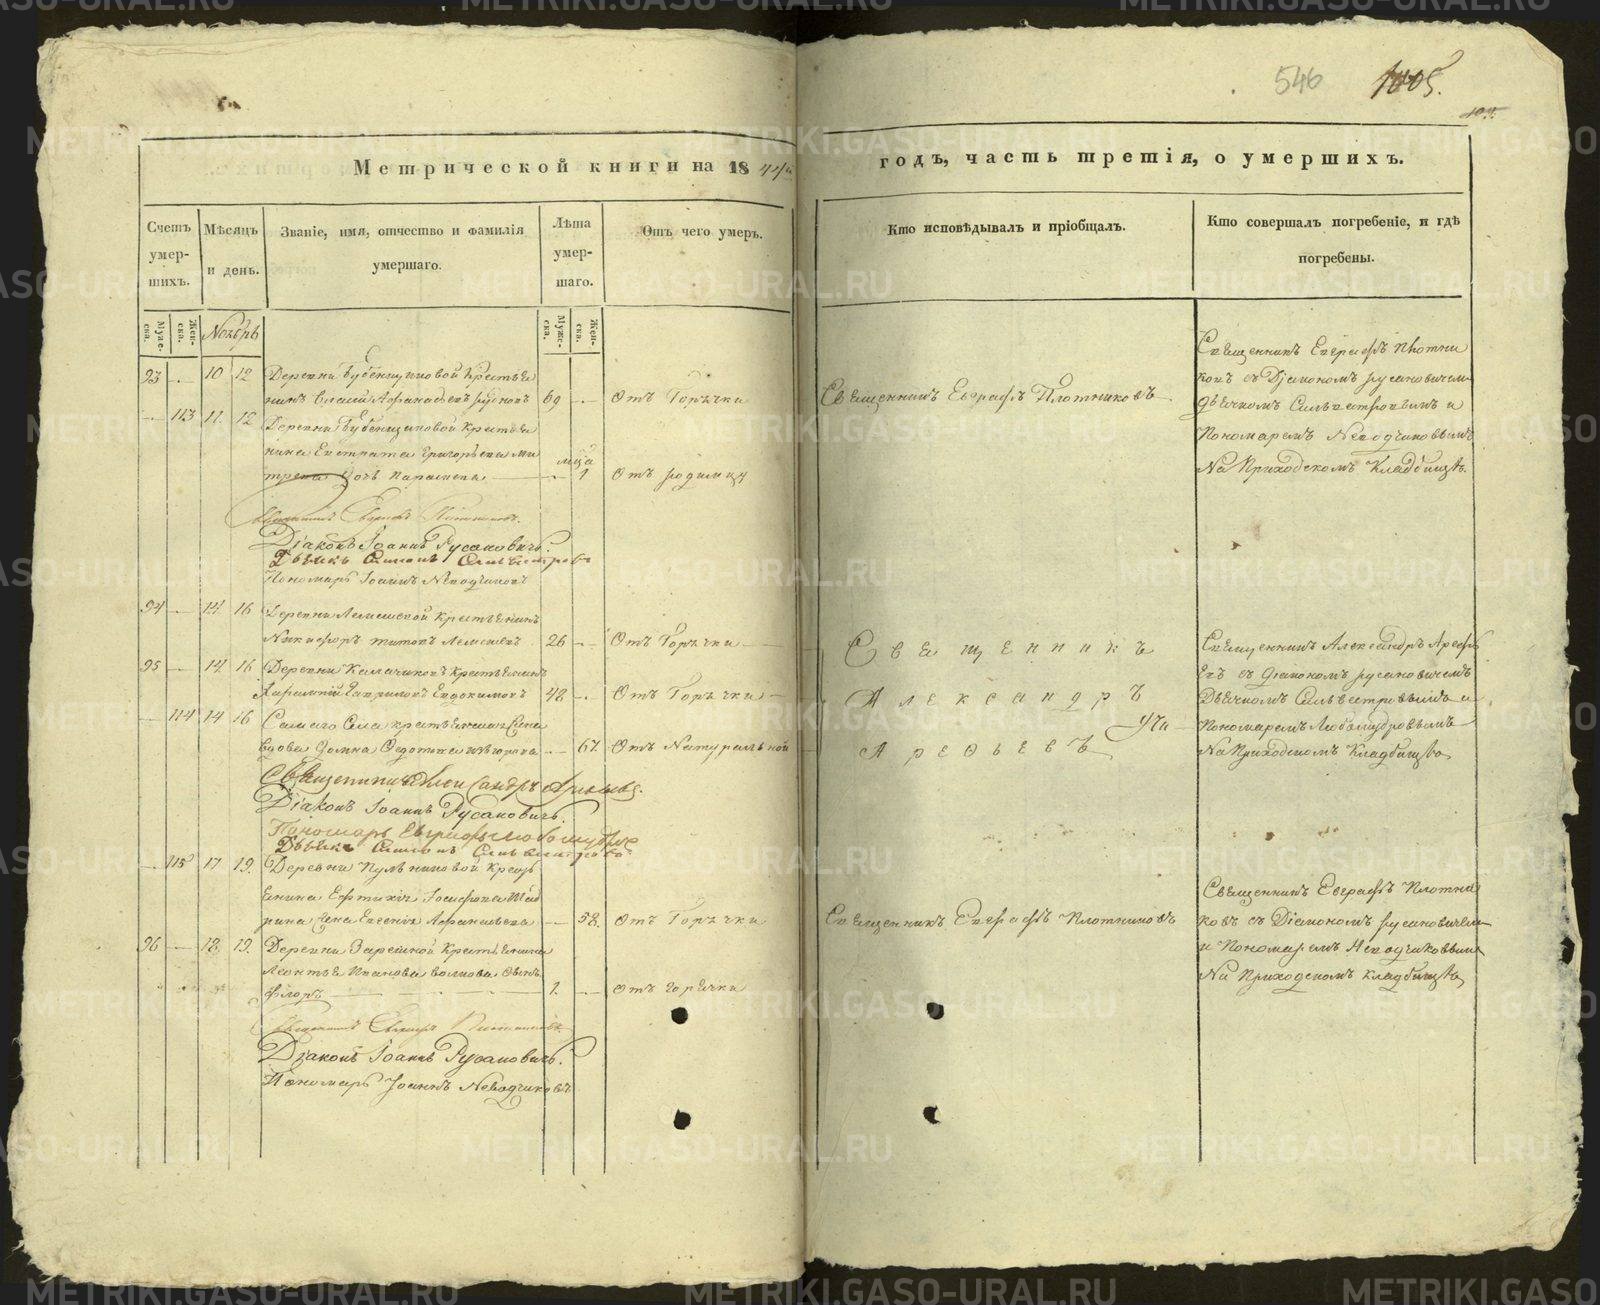 546 1005.
Метрической книги на 1844й
годъ, часть третія, о умершихъ.
Счетъ умер-шихъ.
Мѣсяцъ и день.
Званіе, имя, отчество и фамилія умершаго.
Лѣта умер-шаго.
Отъ чего умеръ.
Кто исповѣдывалъ и пріобщалъ.
Кто совершалъ погребеніе, и гдѣ погребены.
Муже-ска.
Жен-ска.
Ноябрь
Муже-ска.
Жен-ска.
93 10 12 Деревни Бубенщиковой крестья
нинъ Власій Афанасьевъ 69 Отъ Горячки
Священникъ Евграфъ Плотниковъ
Священникъ Евграфъ Плотни
ковъ съ Діакономъ Русановичем
дьячкомъ Сильвестровымъ и
Пономаремъ Неводчиковымъ
На Приходскомъ Кладбищѣ.
113 11 12 Деревни Бубенщиковой крестья
нина Евстрата Григорьева Ми
дочь Параскева 1 Отъ родимцу
Священникъ Евграфъ Плотниковъ.
Діаконъ Іоаннъ Русановичъ.
Дьячекъ Симеонъ Сильвестровъ
Пономарь Іоаннъ Неводчиковъ
94 14 16 Деревни крестьянинъ
Никифоръ Титовъ 26 Отъ Горячки
95 14 16 Деревни Калачиковъ крестьянинъ
Гавриловъ Евдокимовъ 48 Отъ Горячки
114 14 16 Самаго Села крестьянская жена
вдова Домна Федотина 67 Отъ Натуральной
Священникъ
Александръ
Арефьевъ
Священникъ Александръ Арефь
евъ съ діакономъ Русановичемъ
Дьячкомъ Сильвестровымъ и
Пономаремъ Любомудровымъ
На Приходскомъ Кладбищѣ
Священникъ Александръ Арефьевъ.
Діаконъ Іоаннъ Русановичъ.
Пономарь Евграфъ Любомудровъ
Дьячекъ Симеонъ Сильвестровъ
115 17 19 Деревни крестья
янина Евтихія Іосифова
жена Евгенія Афанасьева 58 Отъ Горячки
Священникъ Евграфъ Плотниковъ
Священникъ Евграфъ Плотни
ковъ съ Діакономъ Русановичем
и Пономаремъ Неводчиковым
На Приходскомъ Кладбищѣ
96 18 19 Деревни Зарецкой крестьянина
Леонтья Иванова Волкова сынъ
Флоръ 1 отъ горячки
Священникъ Евграфъ Плотниковъ
Діаконъ Іоаннъ Русановичъ.
Пономарь Іоаннъ Неводчиковъ
METRIKI.GASO-URAL.RU